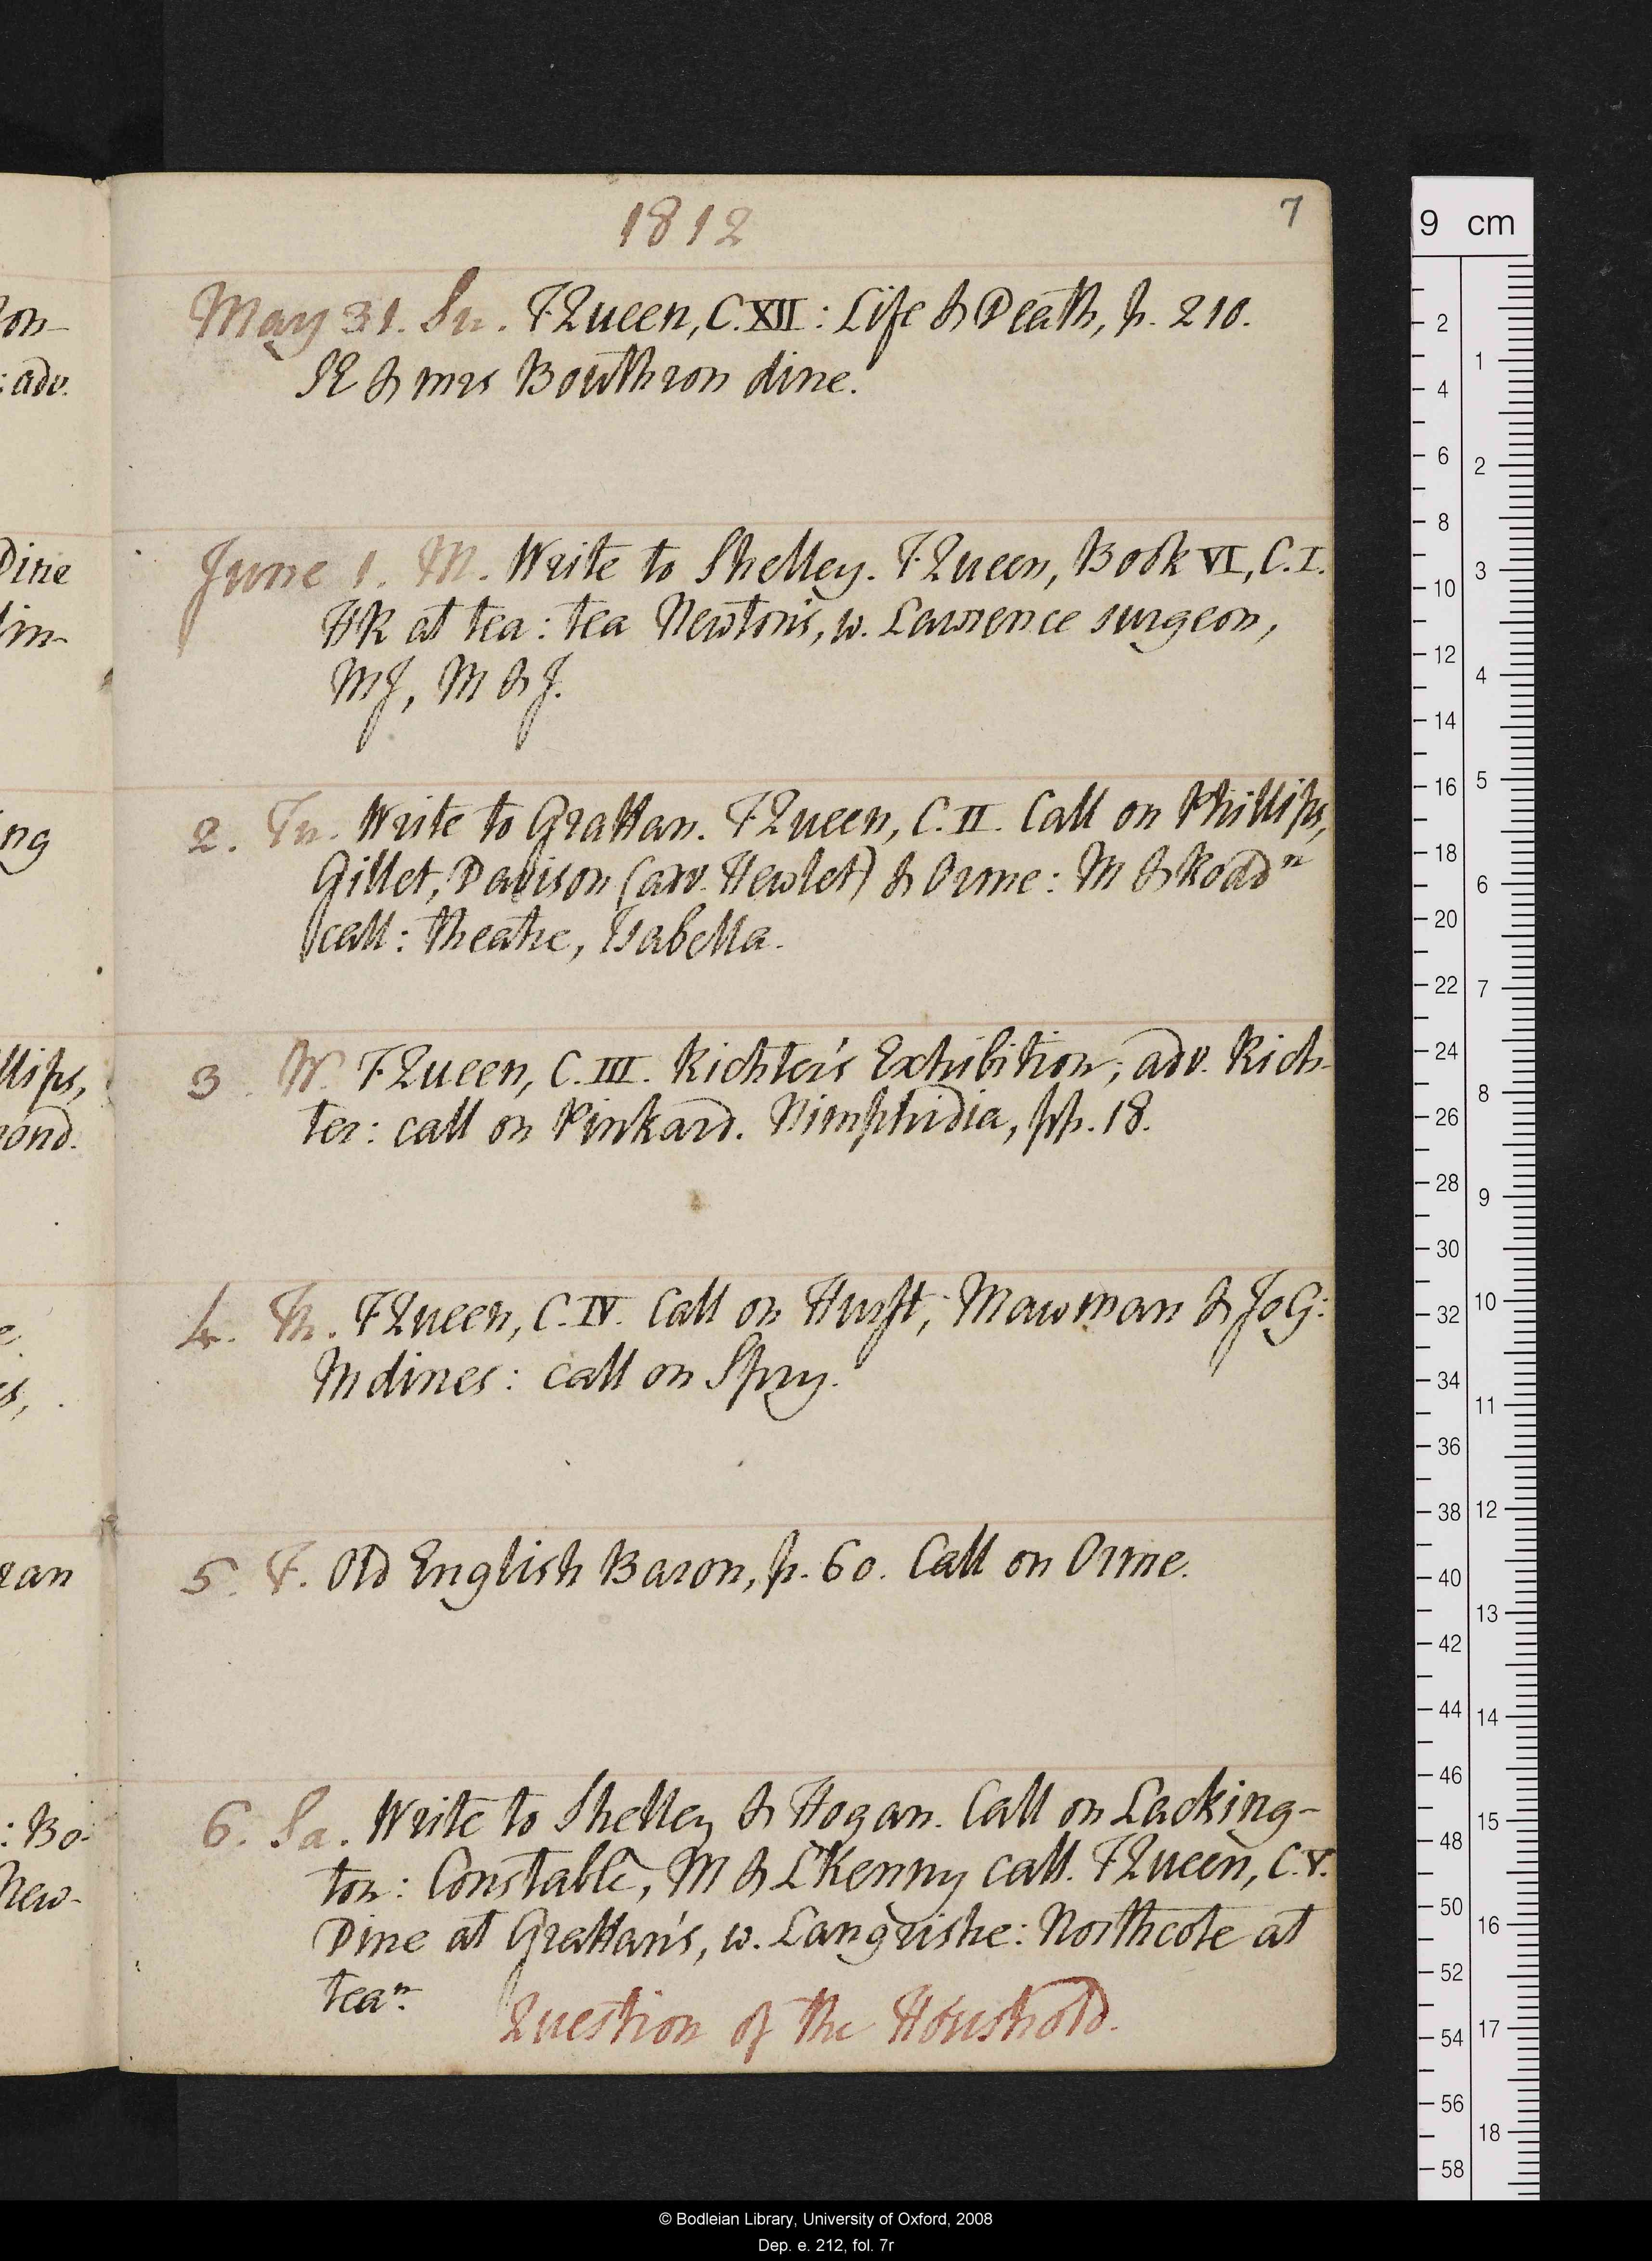 1812
7
May 31. Su. FQueen, C. XII: Life & Death, p. 210.
SE & mrs Bowthron dine.
June 1. M. Write to Shelley. FQueen, Book VI, C. I.
HR at tea: tea Newton's, w. Lawrence surgeon,
MJ, M & J.
2. Tu. Write to Grattan. FQueen, C. II. Call on Phillips,
Gillet, Davison (adv. Hewlet) & Orme: M & Roddn
call: theatre, Isabella.
3. W. FQueen, C. III. Richter's Exhibition; adv. Rich-
ter: call on Pinkard. Nimphidia, pp. 18.
4. Th. FQueen, C. IV. Call on Hurst, Mawman & JoG:
M dines: call on Spry.
5. F. Old English Baron, p. 60. Call on Orme.
6. Sa. Write to Shelley & Hogan. Call on Lacking-
ton: Constable, M & L Kenny call. FQueen, C. V.
Dine at Grattan's, w. Langrishe: Northcote at
tean.
Question of the Houshold.
on-
: adv.
Dine
im-
ng
llips,
rond.
e.
s,
ran
: Bo-
New-
9 cm
2
4
6
8
10
12
14
16
18
20
22
24
26
28
30
32
34
36
38
40
42
44
46
48
50
52
54
56
58
1
2
3
4
5
6
7
8
9
10
11
12
13
14
15
16
17
18
© Bodleian Library, University of Oxford, 2008
Dep. e. 212, fol. 7r